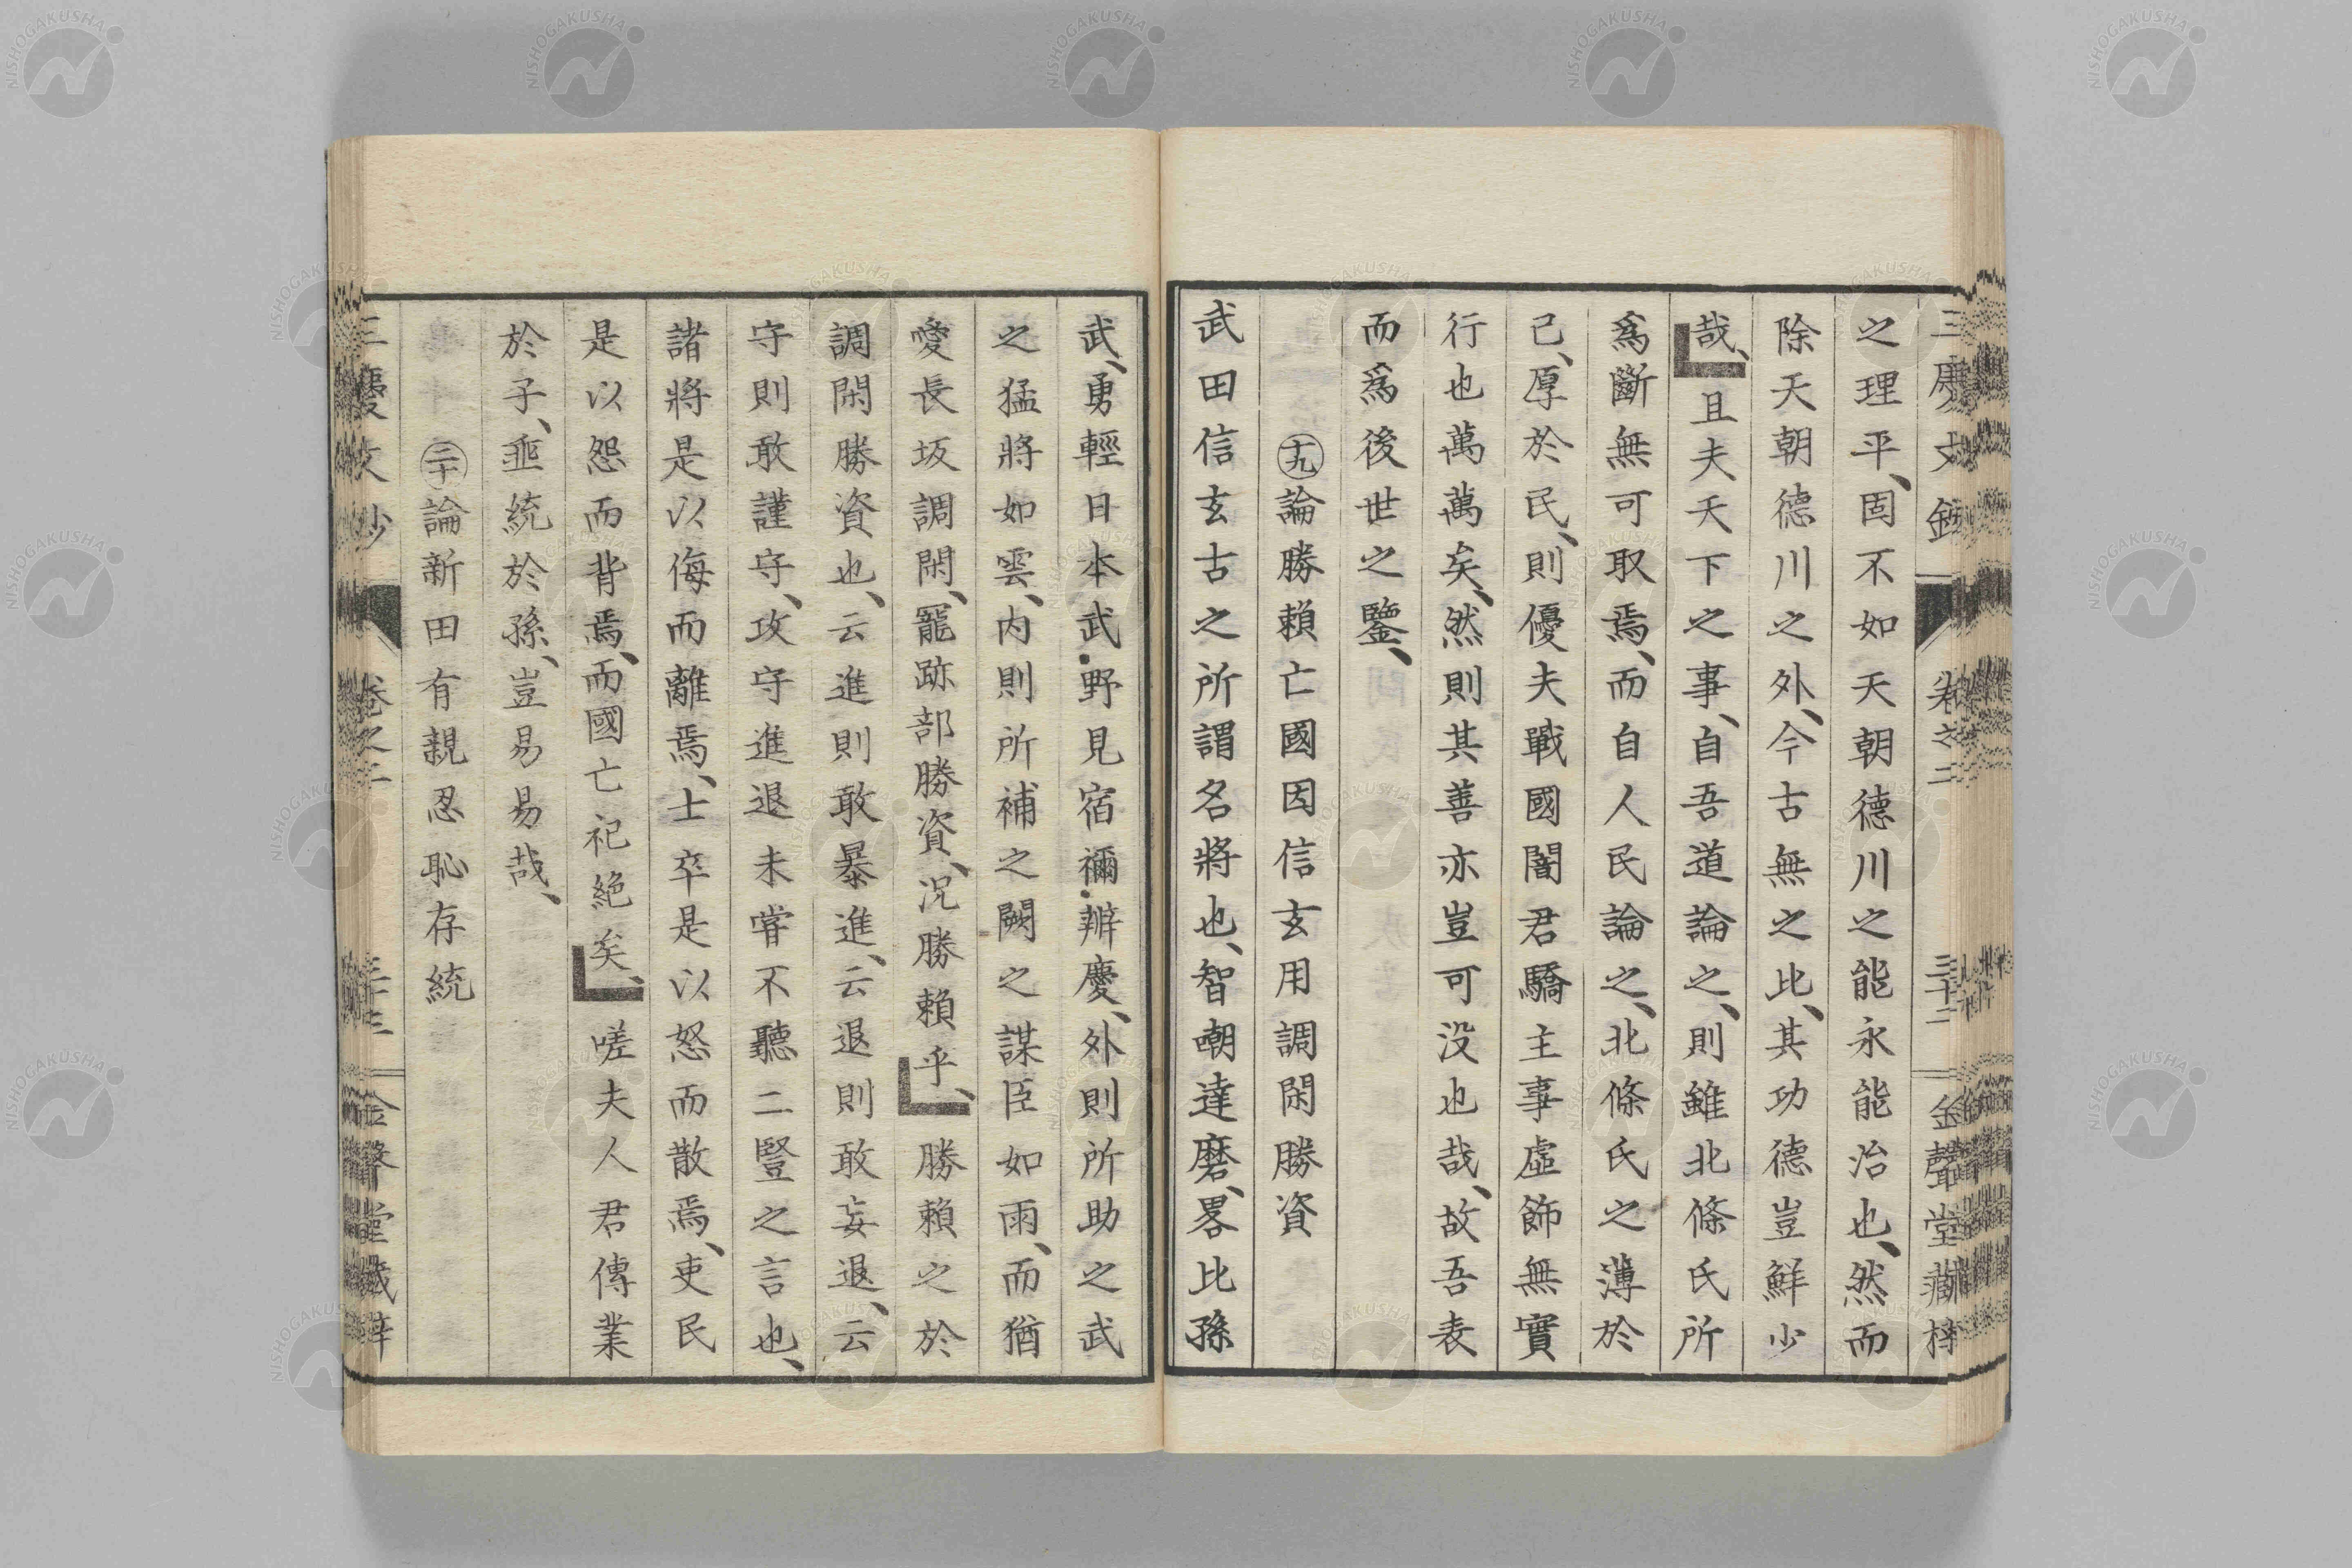 之理平、固不如天朝德川之能永能治也、然而
除天朝德川之外、今古無之比、其功德豈鮮少
哉、且夫天下之事、自吾道論之、則雖北條氏所
爲斷無可取焉、而自人民論之、北條氏之薄於
己、厚於民、則優夫戰國闇君驕主事虛飾無實
行也萬萬矣、然則其善亦豈可没也哉、故吾表
而爲後世之鑒、
十九論勝賴亡國因信玄用調閑勝資
武田信玄古之所謂名將也、智嘲達磨、畧比孫
武、勇輕日本武・野見宿禰・辨慶、外則所助之武
之猛將如雲、内則所補之闕之謀臣如雨、而猶
愛長坂調閑、寵跡部勝資、况勝賴乎、勝賴之於
調閑勝資也、云進則敢暴進、云退則敢妄退、云
守則敢謹守、攻守進退未嘗不聽二豎之言也、
諸將是以侮而離焉、士卒是以怒而散焉、吏民
是以怨而背焉、而國亡祀絶矣、嗟夫人君傳業
於子、垂統於孫、豈易易哉、
二十論新田有親忍恥存統
三慶文鈔 卷之二 三十二 金聲堂藏梓
NISHOGAKUSHA